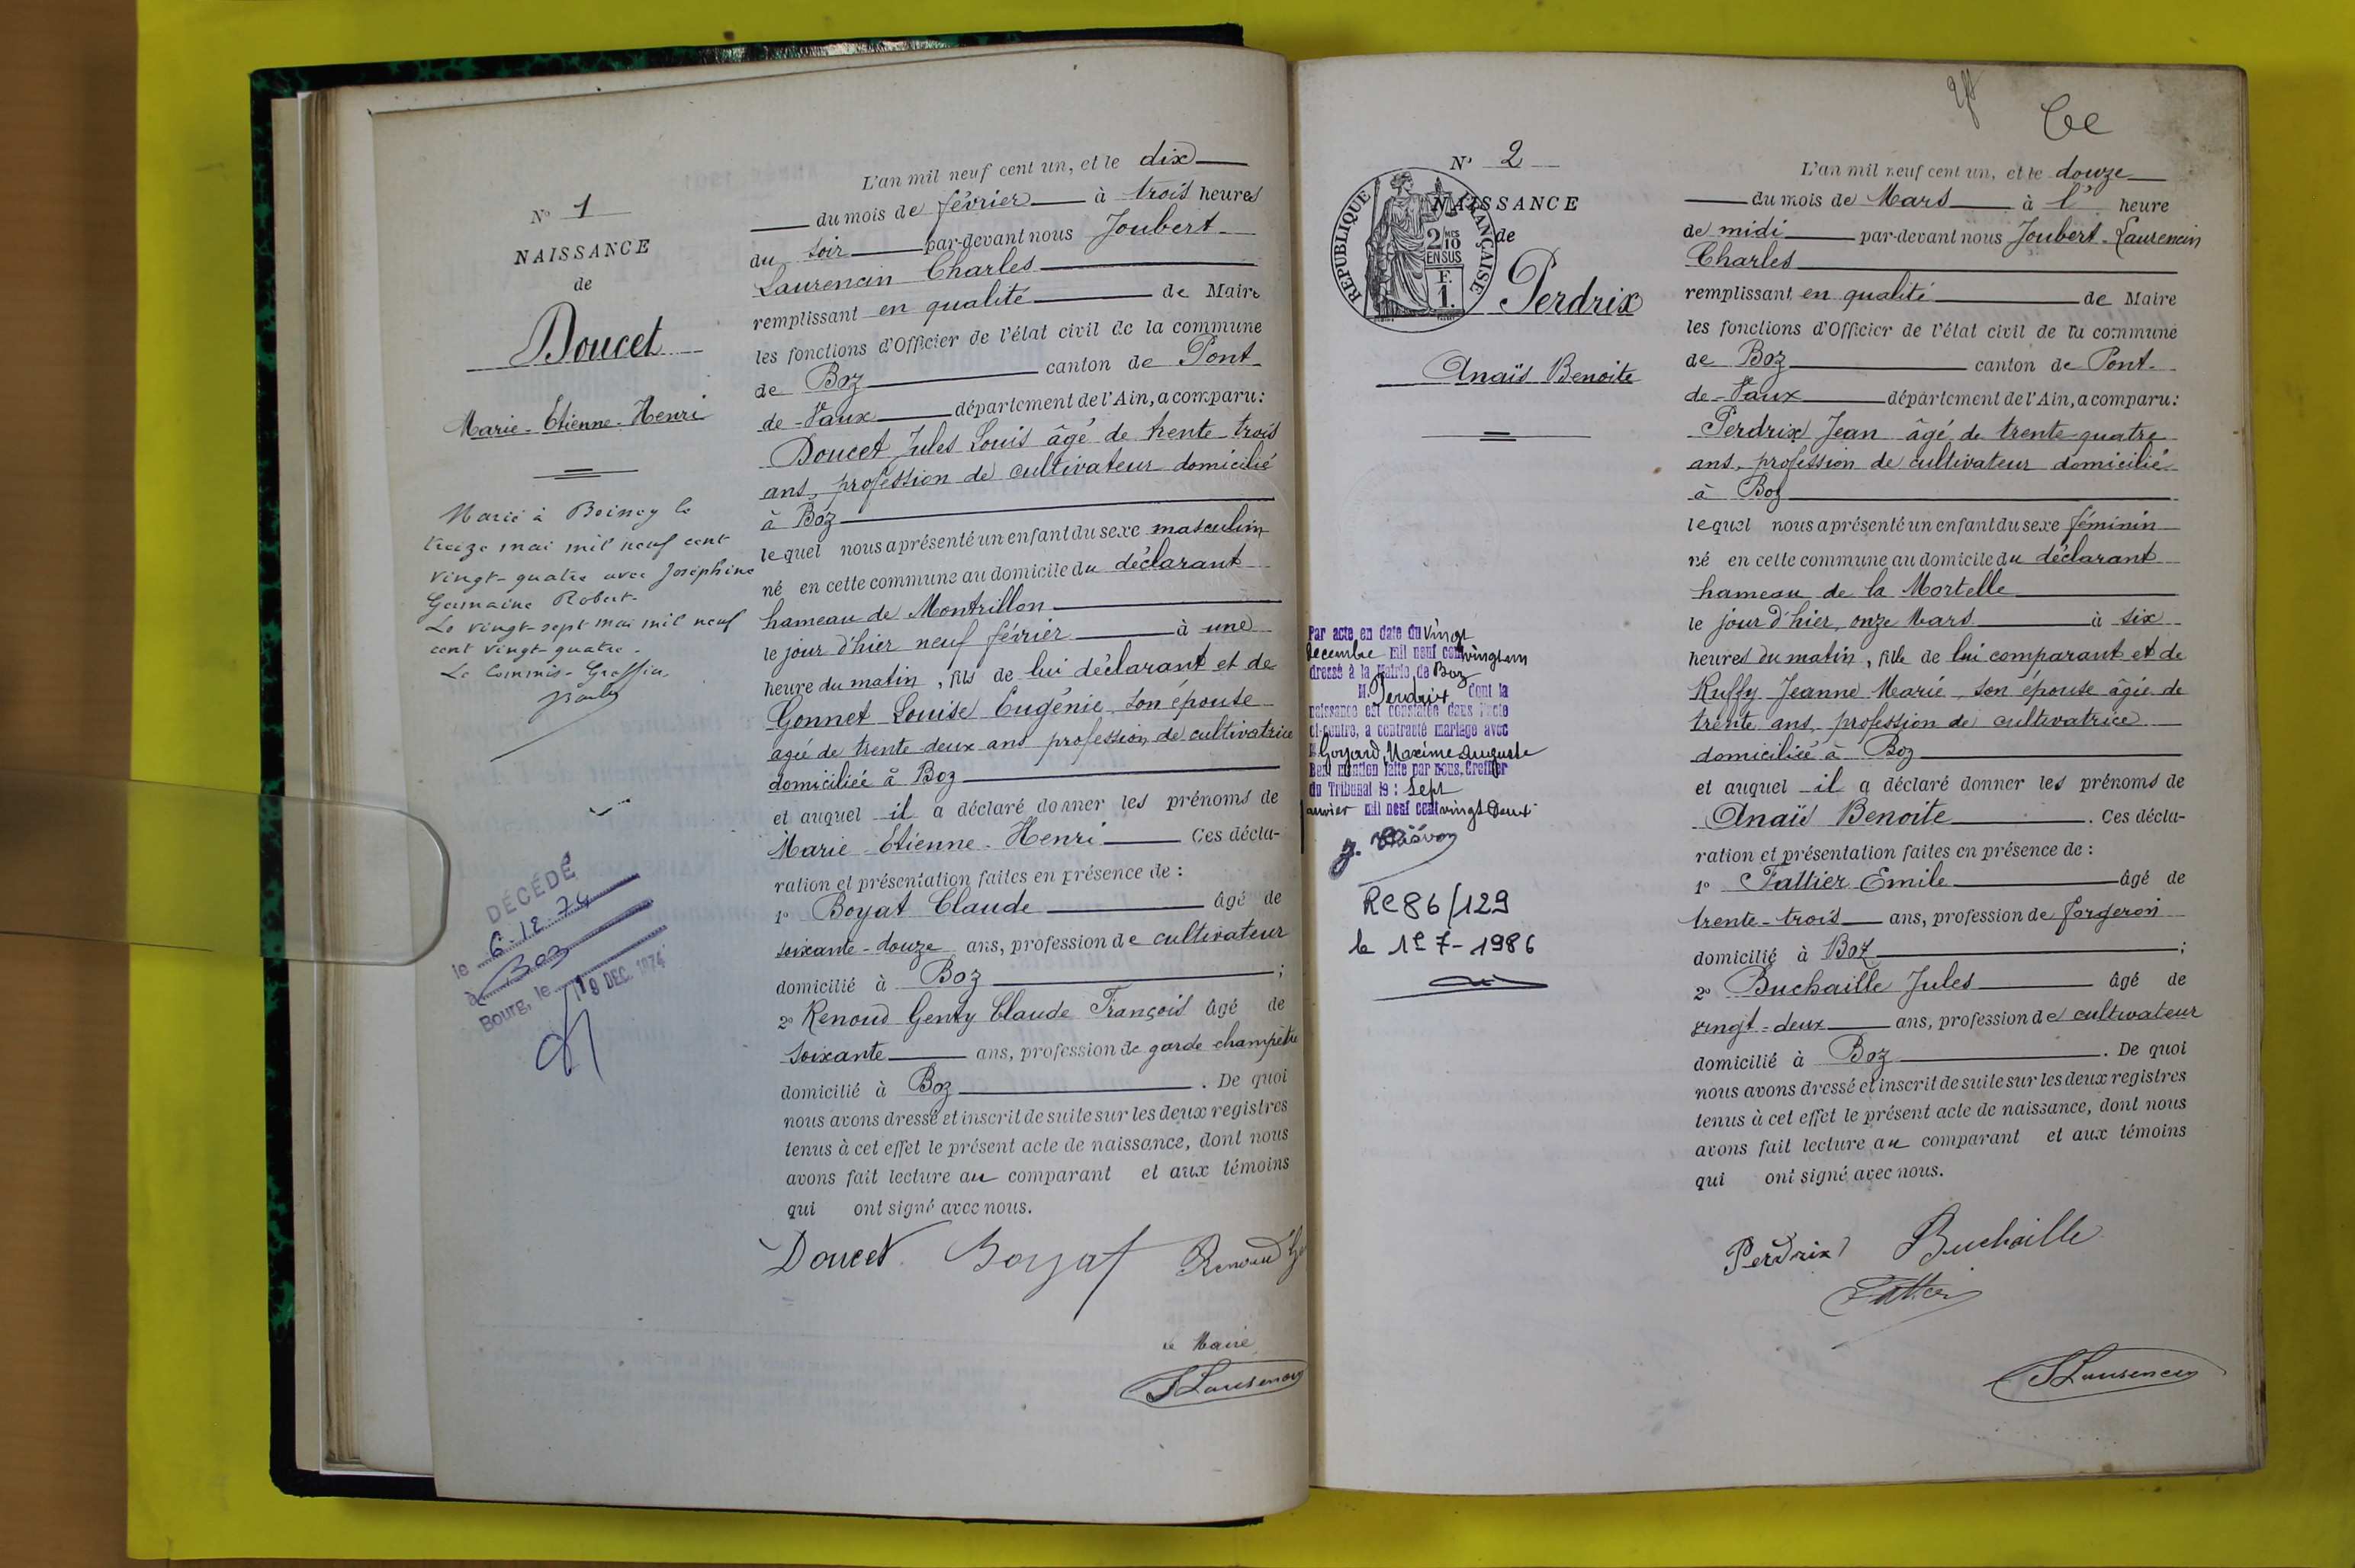 N° 1
NAISSANCE
de
Doucet
Marie-Etienne-Henri
Marié à Boissey le
treize mai mil neuf cent
vingt-quatre avec Joséphine
Germaine Robert.
Le vingt-sept mai mil neuf
cent vingt-quatre.
Le Commis-Greffier
DÉCÉDÉ
le 6-12-74
à Boz
Bourg, le 19 DEC. 1974
L'an mil neuf cent un, et le dix
du mois de février à trois heures
du soir par-devant nous Joubert-
Laurencin Charles
remplissant en qualité de Maire
les fonctions d'Officier de l'état civil de la commune
de Boz canton de Pont-
de-Vaux département de l'Ain, a comparu:
Doucet Jules Louis âgé de trente-trois
ans, profession de cultivateur domicilié
à Boz
lequel nous a présenté un enfant du sexe masculin
né en cette commune au domicile du déclarant
hameau de Montrillon
le jour d'hier neuf février à une
heure du matin, fils de lui déclarant et de
Gonnet Louise Eugénie son épouse
agée de trente deux ans profession de cultivatrice
domiciliée à Boz
et auquel il a déclaré donner les prénoms de
Marie-Etienne-Henri Ces décla-
ration et présentation faites en présence de :
1° Boyat Claude âgé de
soixante-douze ans, profession de cultivateur
domicilié à Boz ;
2° Renoud Genty Claude François âgé de
soixante ans, profession de garde champêtre
domicilié à Boz . De quoi
nous avons dressé et inscrit de suite sur les deux registres
tenus à cet effet le présent acte de naissance, dont nous
avons fait lecture au comparant et aux témoins
qui ont signé avec nous.
Doucet Boyat Renoud Ge
Le Maire
JLaurencin
N° 2
NAISSANCE
de
RÉPUBLIQUE FRANÇAISE
2/10 MES
EN SUS
F.
1.
Perdrix
Anaïs Benoite
Par acte en date du vingt
décembre mil neuf cent vingt un
dressé à la Mairie de Boz
M. Perdrix dont la
naissance est constatée dans l'acte
ci-contre, a contracté mariage avec
M Goyard, Maxime Auguste
Dont mention faite par nous, Greffier
du Tribunal le : Sept
janvier mil neuf cent vingt Deux
RC 86/129
le 1er 7-1986
L'an mil neuf cent un, et le douze
du mois de Mars à l' heure
de midi par-devant nous Joubert-Laurencin
Charles
remplissant en qualité de Maire
les fonctions d'Officier de l'état civil de la commune
de Boz canton de Pont-
de-Vaux département de l'Ain, a comparu:
Perdrix Jean âgé de trente-quatre
ans, profession de cultivateur domicilié
à Boz
lequel nous a présenté un enfant du sexe féminin
né en cette commune au domicile du déclarant
hameau de la Mortelle
le jour d'hier, onze Mars à six
heures du matin, fille de lui comparant et de
Ruffy Jeanne Marie, son épouse âgée de
trente ans, profession de cultivatrice
domiciliée à Boz
et auquel il a déclaré donner les prénoms de
Anaïs Benoite . Ces décla-
ration et présentation faites en présence de :
1° Fattier Emile âgé de
trente-trois ans, profession de forgeron
domicilié à Boz ;
2° Buchaille Jules âgé de
vingt-deux ans, profession de cultivateur
domicilié à Boz . De quoi
nous avons dressé et inscrit de suite sur les deux registres
tenus à cet effet le présent acte de naissance, dont nous
avons fait lecture au comparant et aux témoins
qui ont signé avec nous.
Perdrix Buchaille
Fattier
JLaurencin